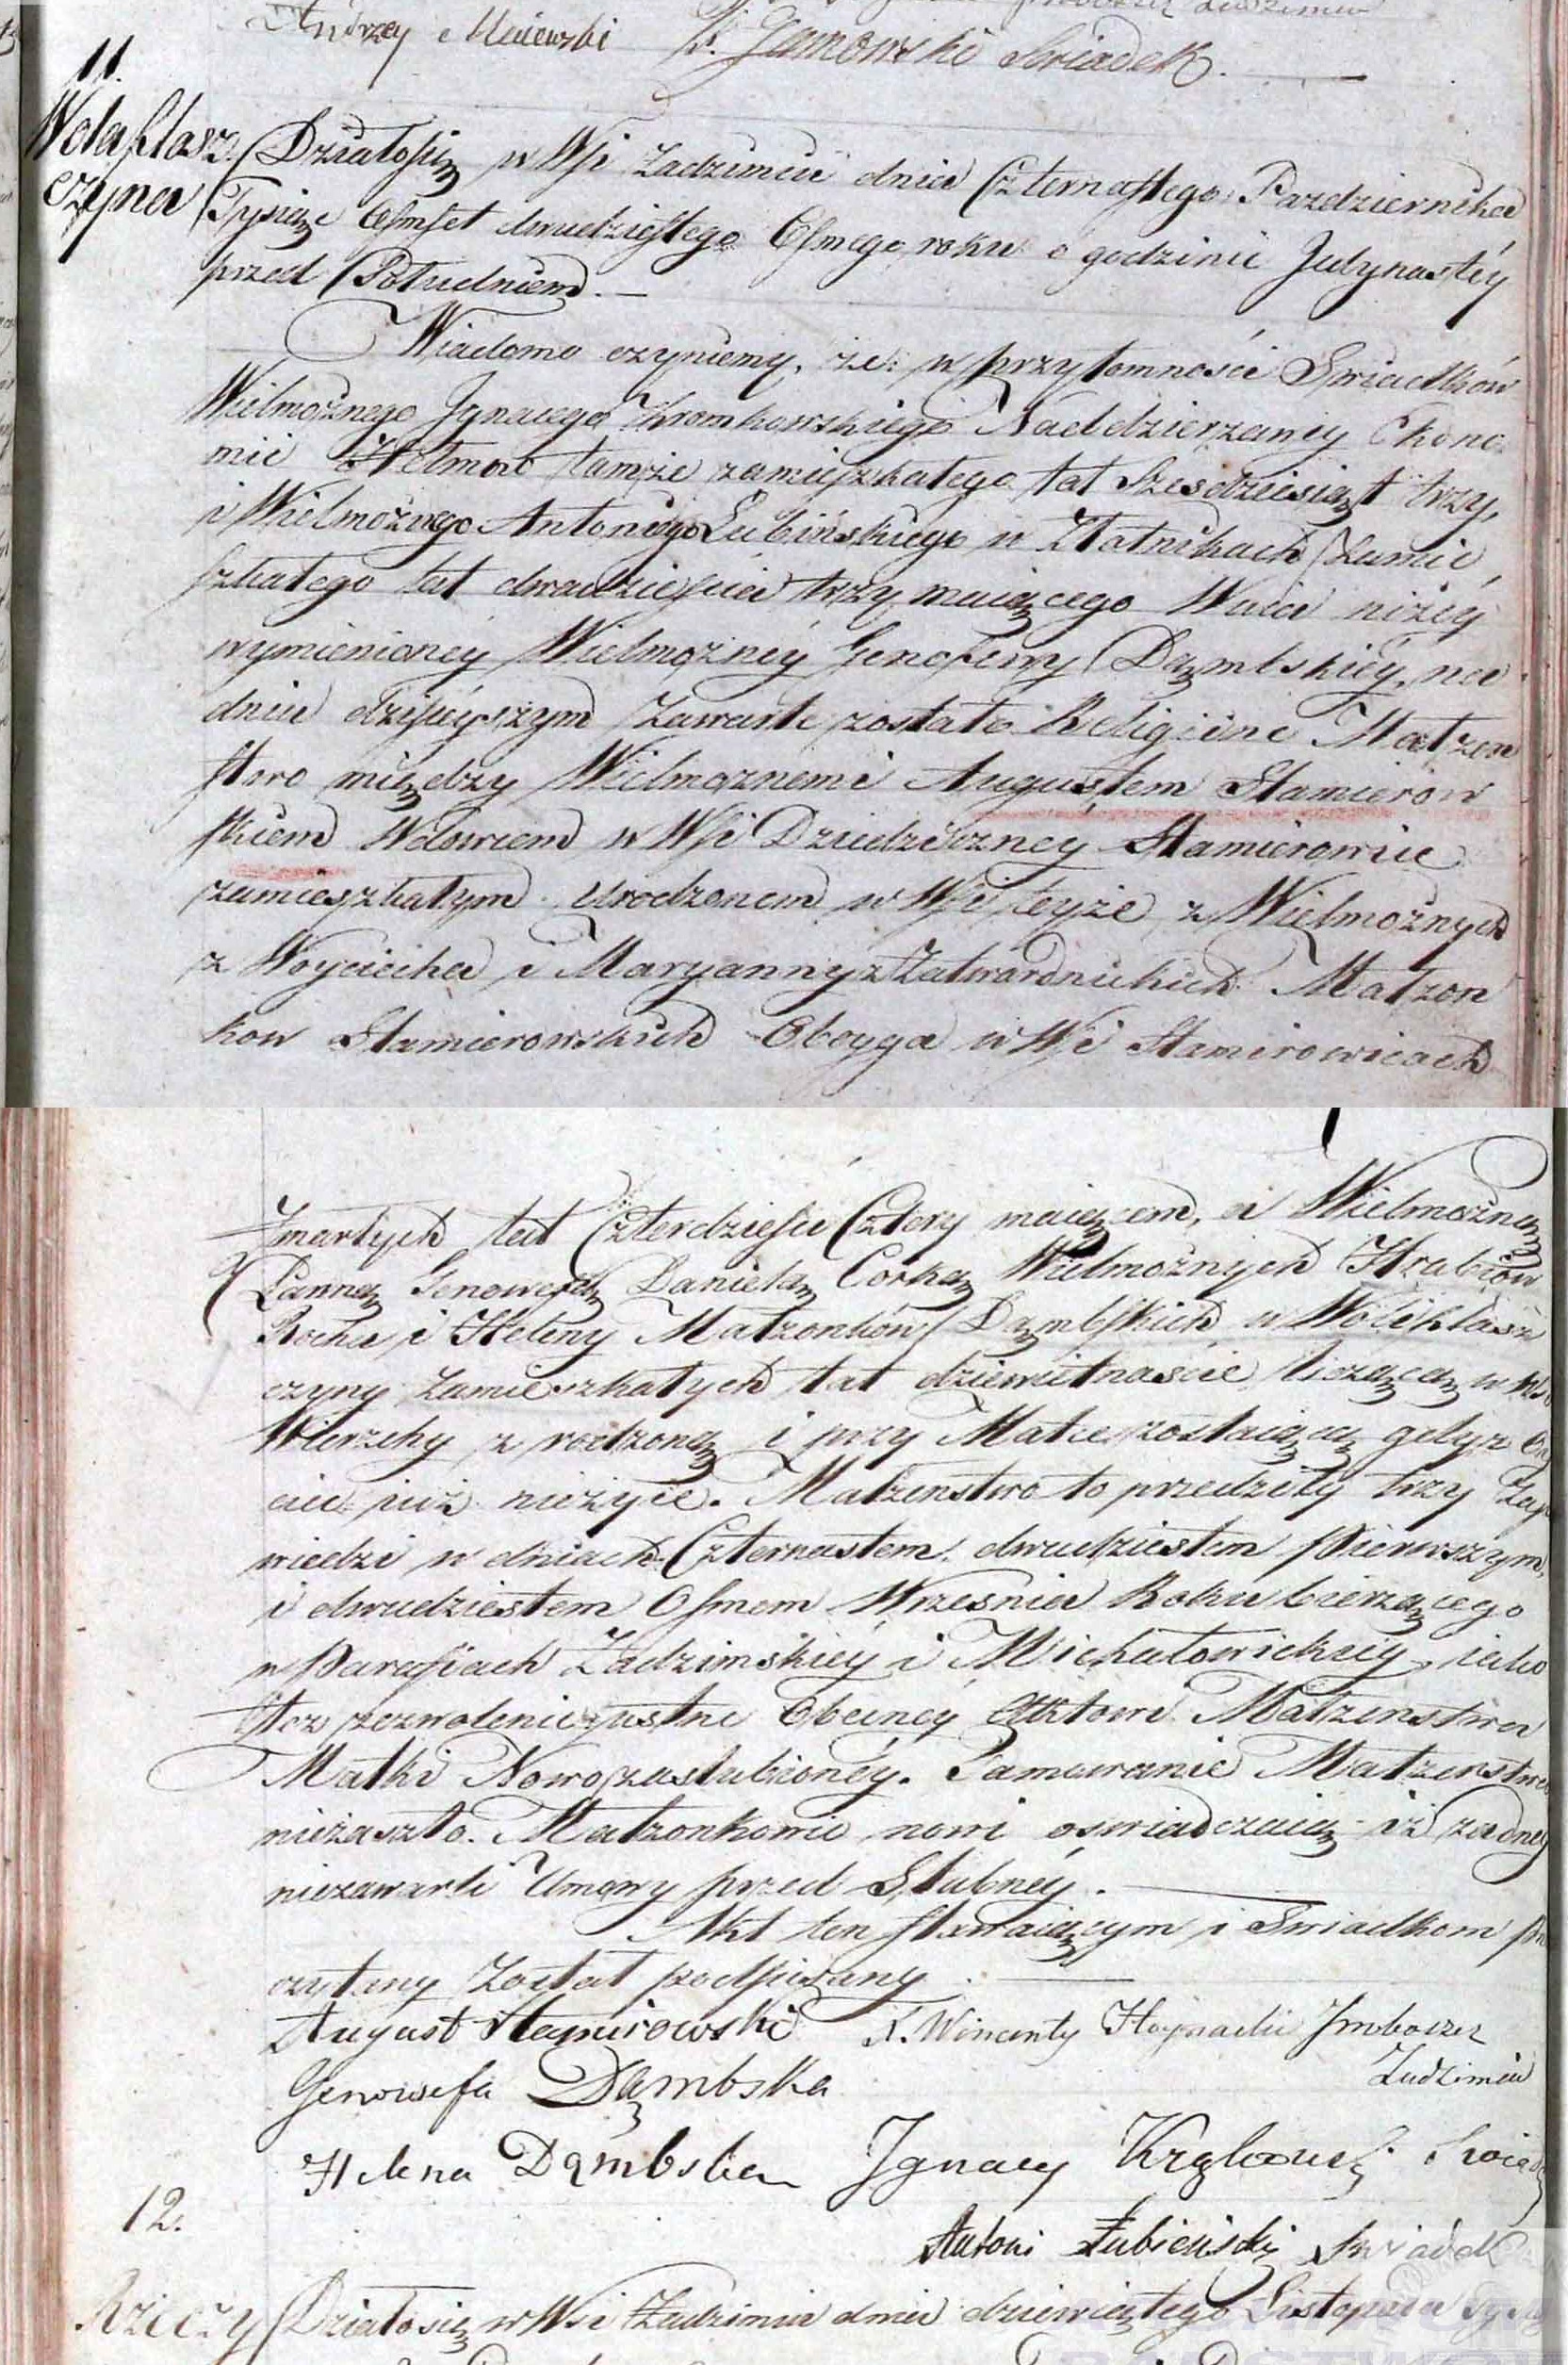 Andrzey Maiewski K. Janowski Swiadek.
11.
Wola flasz
czyna
Działosię w Wsi Zadzimiu dnia Czternastego Pazdziernika
Tysiąc Osmset dwudziestego Osmego roku o godzinie Jedynastéy
przed Południem. —
Wiadomo czyniemy, że w przytomności Swiadków
Wielmożnego Jgnacego Nad dzierzawcy Ekono
mii tamże zamieszkałego lat Sześcdziesiąt trzy,
i Wielmożnego Antoniego Łubińskiego w Złotnikach Zamie
szkałego lat dwadzieścia trzy maiącego Wuia niżéy
wymienionéy Wielmożnéy Genofewy Dąmbskiéy, na
dniu dzisieyszym Zawarte zostało Religiine Małżen
stwo między Wielmożnemi Augustem Stamierow
skiem Wdowcem w Wsi Dziedziczney Stamierowice
zamieszkałym urodzonem w Wsi teyże z Wielmożnych
z Woyciecha i Maryanny z Zatwardnickich Małżon
kow Stamierowskich Oboyga w Wsi Stamirowicach
Zmarłych lat Czterdzieści Cztery maiącem, a Wielmożną
Panną Genowefą Danielą Corką Wielmożnych Hrabiów
Rocha i Heleny Małżonków Dąmbskich w Woli flasz
czyny Zamieszkałych lat dziewietnaście liczącą w Wsi
Wierzchy z rodzoną i przy Matce zostaiącą gdyż Oy
ciec iuż nieżyie. Małżenstwo to przedziły trzy Zapo
wiedzi w dniach Czternastem, dwudziestem Pierwszym,
i dwudziestem Osmem Wrzesnia Roku bierzącego
w Parafiach Zadzimskiéy i Michałowickiéy, iako
tez zezwolenie ustne Obecnéy Aktowi Małżenstwa
Matki Nowozaslubionéy. Tamowanie Małżenstwa
nieżaszło. Małżonkowie nowi oswiadczaią iż żadnéy
niezawarli Umowy przed Slubnéy. —
Akt ten stawaiącym i Swiadkom prze
czytany Został podpisany. —
August Stamirowski X. Wincenty Proboszcz
Zadzimia
Genowefa Dąmbska
Helena Dąmbska Jgnacy Swiadek
Antoni Łubieński Swiadek
12.
Rzeczy Działosię w Wsi Zadzimiu dnia dziewiętego Listopada Tysiąc